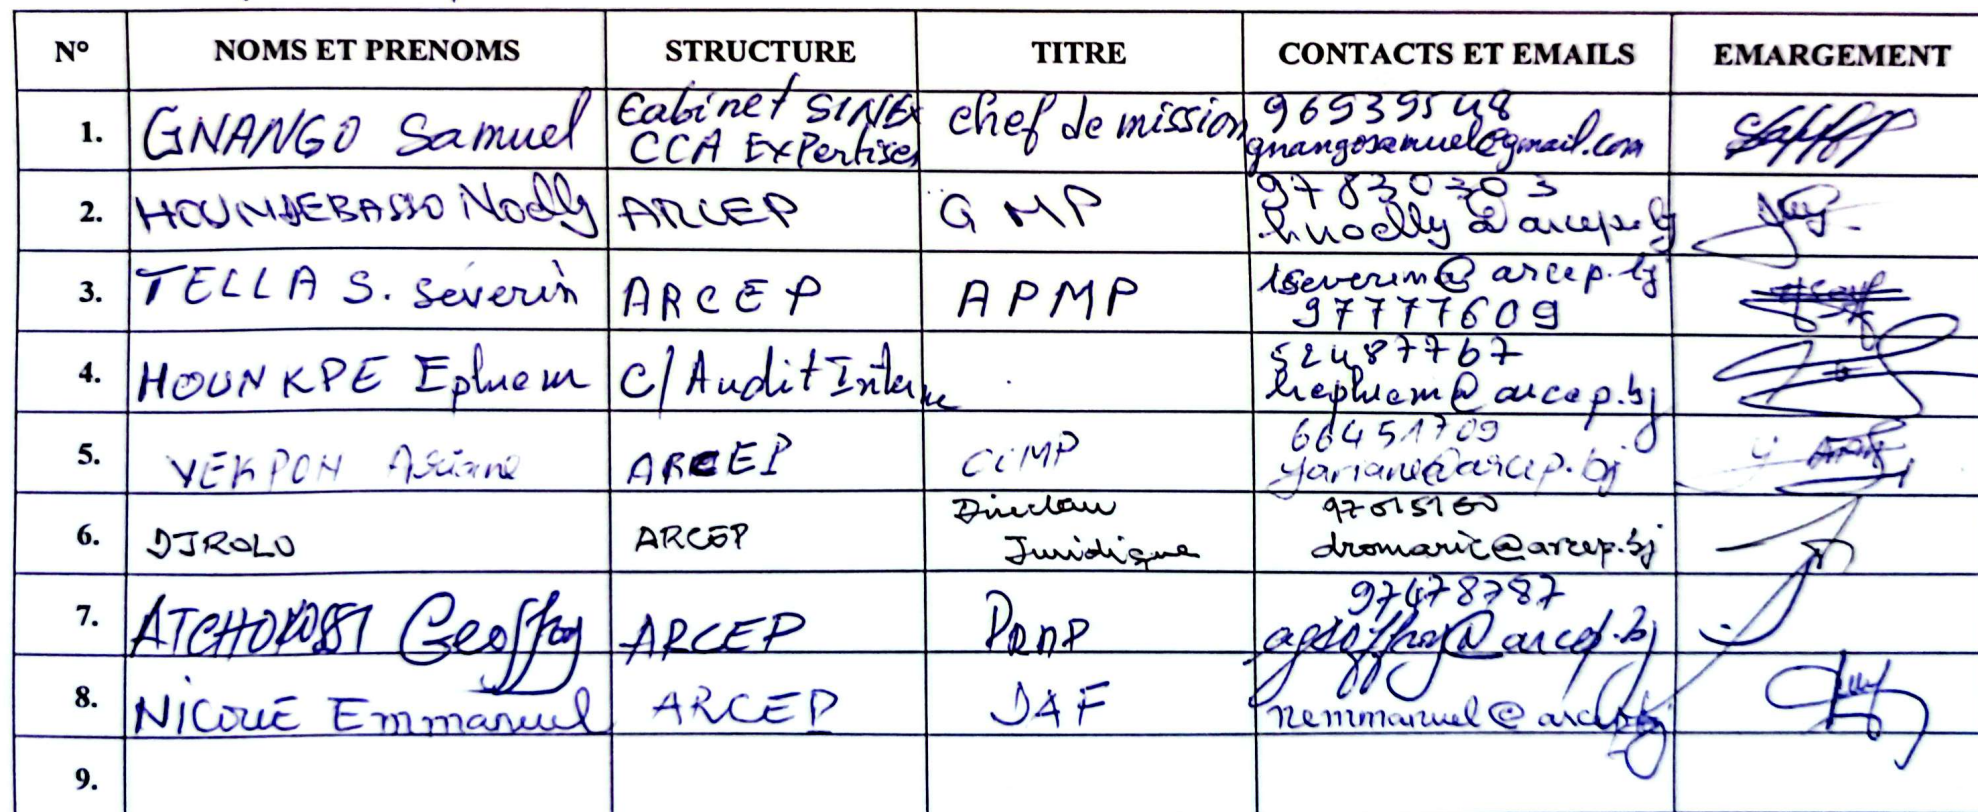 N° NOMS ET PRENOMS STRUCTURE TITRE CONTACTS ET EMAILS EMARGEMENT
1. GNANGO Samuel Cabinet SINEX CCA EXPertises Chef de mission 96939548 gnangosamuel@gmail.com
2. HOUNDEBASSO Noelly ARCEP GMP 97830303 hnoelly@arcep.bj
3. TELLA S. Séverin ARCEP APMP tseverin@arcep.bj 97777609
4. HOUNKPE Ephrem C/Audit Interne 52487767 hephrem@arcep.bj
5. YEKPON Ariane ARCEP 66451709 yariane@arcep.bj
6. DJROLO ARCEP Directeur Juridique 97615160 dromaric@arcep.bj
7. ATCHOKOSSI Geoffroy ARCEP PRMP 97478787 ageoffroy@arcep.bj
8. NICOUE Emmanuel ARCEP DAF nemmanuel@arcep.bj
9.